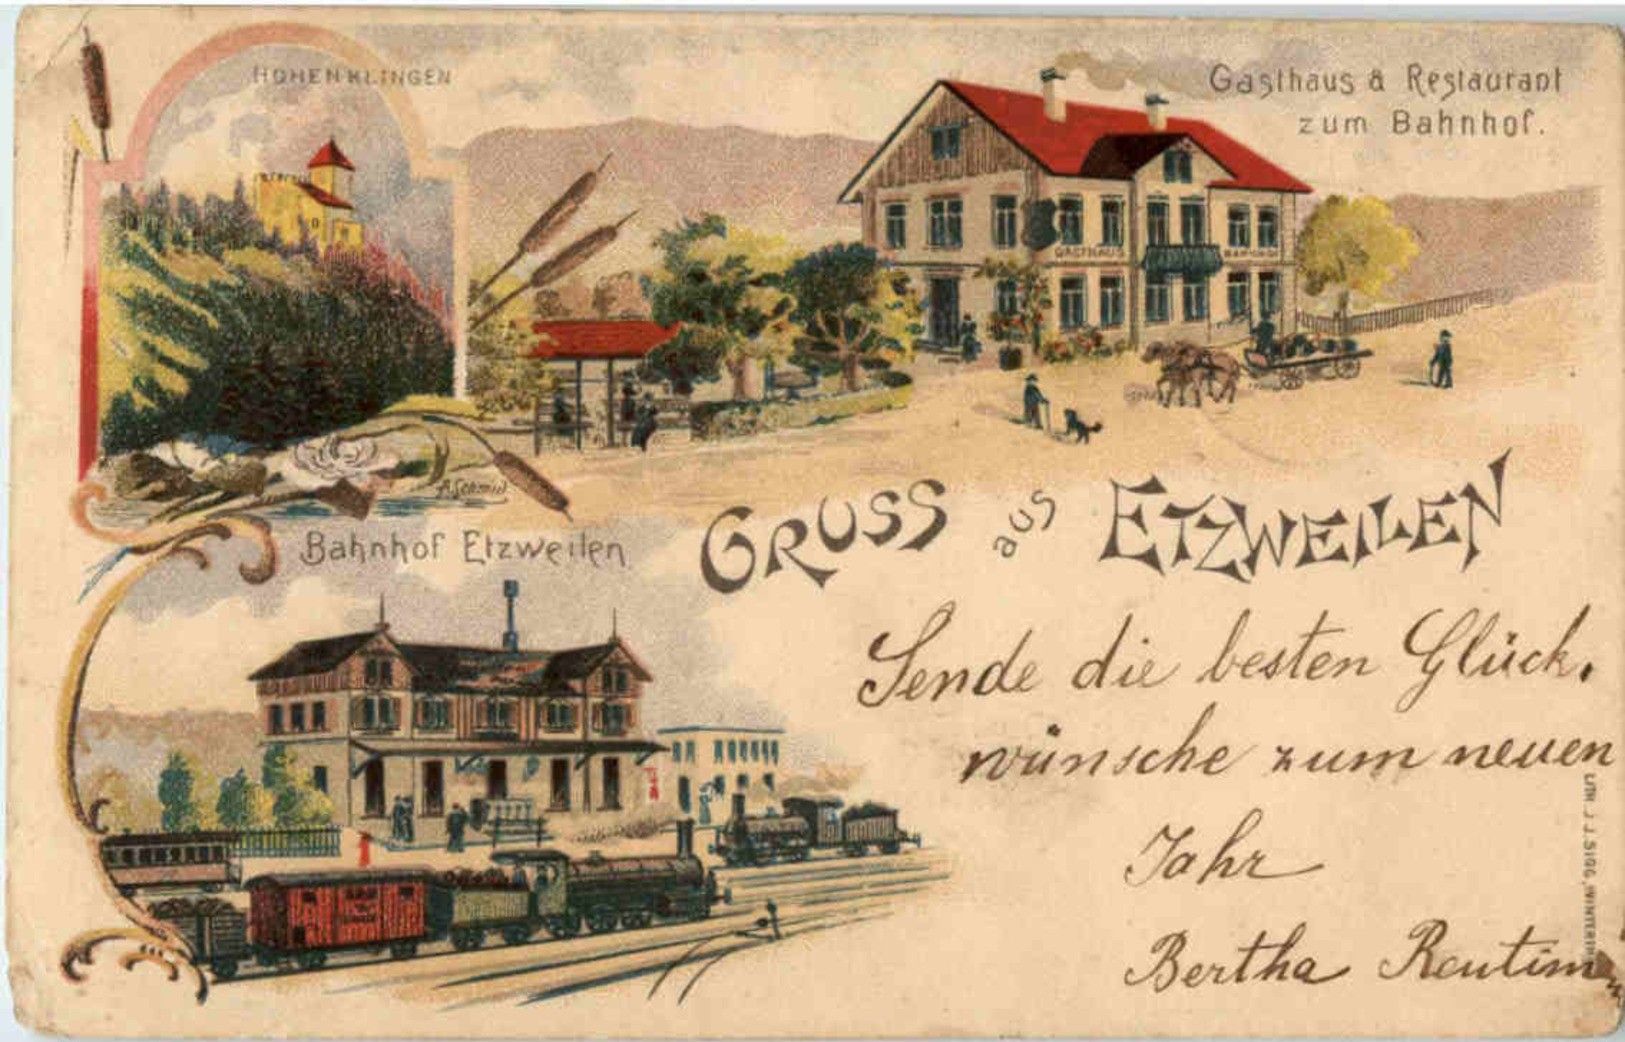 HOHENKLINGEN
Gasthaus & Restaurant
zum Bahnhof.
GASTHAUS BAHNHOF
A. Schmid
Bahnhof Etzweilen
GRUSS aus ETZWEILEN
Sende die besten Glück,
wünsche zum neuen
Jahr
Bertha
LITH. J. J. SIGG, WINTERTHUR